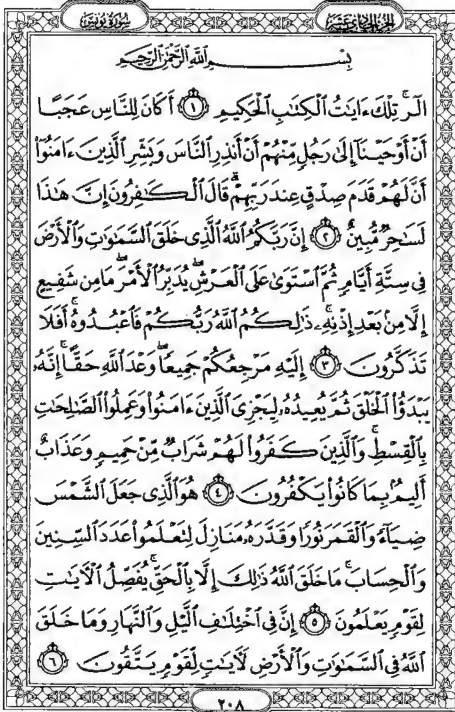 الجزء الحادي عشر
سورة يونس
بِسْمِ اللَّهِ الرَّحْمَٰنِ الرَّحِيمِ
الٓر ۚ تِلْكَ ءَايَٰتُ ٱلْكِتَٰبِ ٱلْحَكِيمِ ١ أَكَانَ لِلنَّاسِ عَجَبًا
أَنْ أَوْحَيْنَآ إِلَىٰ رَجُلٍ مِّنْهُمْ أَنْ أَنذِرِ ٱلنَّاسَ وَبَشِّرِ ٱلَّذِينَ ءَامَنُوٓا۟
أَنَّ لَهُمْ قَدَمَ صِدْقٍ عِندَ رَبِّهِمْ ۗ قَالَ ٱلْكَٰفِرُونَ إِنَّ هَٰذَا
لَسَٰحِرٌ مُّبِينٌ ٢ إِنَّ رَبَّكُمُ ٱللَّهُ ٱلَّذِى خَلَقَ ٱلسَّمَٰوَٰتِ وَٱلْأَرْضَ
فِى سِتَّةِ أَيَّامٍ ثُمَّ ٱسْتَوَىٰ عَلَى ٱلْعَرْشِ ۖ يُدَبِّرُ ٱلْأَمْرَ ۖ مَا مِن شَفِيعٍ
إِلَّا مِنۢ بَعْدِ إِذْنِهِۦ ۚ ذَٰلِكُمُ ٱللَّهُ رَبُّكُمْ فَٱعْبُدُوهُ ۚ أَفَلَا
تَذَكَّرُونَ ٣ إِلَيْهِ مَرْجِعُكُمْ جَمِيعًا ۖ وَعْدَ ٱللَّهِ حَقًّا ۚ إِنَّهُۥ
يَبْدَؤُا۟ ٱلْخَلْقَ ثُمَّ يُعِيدُهُۥ لِيَجْزِىَ ٱلَّذِينَ ءَامَنُوا۟ وَعَمِلُوا۟ ٱلصَّٰلِحَٰتِ
بِٱلْقِسْطِ ۚ وَٱلَّذِينَ كَفَرُوا۟ لَهُمْ شَرَابٌ مِّنْ حَمِيمٍ وَعَذَابٌ
أَلِيمٌۢ بِمَا كَانُوا۟ يَكْفُرُونَ ٤ هُوَ ٱلَّذِى جَعَلَ ٱلشَّمْسَ
ضِيَآءً وَٱلْقَمَرَ نُورًا وَقَدَّرَهُۥ مَنَازِلَ لِتَعْلَمُوا۟ عَدَدَ ٱلسِّنِينَ
وَٱلْحِسَابَ ۚ مَا خَلَقَ ٱللَّهُ ذَٰلِكَ إِلَّا بِٱلْحَقِّ ۚ يُفَصِّلُ ٱلْءَايَٰتِ
لِقَوْمٍ يَعْلَمُونَ ٥ إِنَّ فِى ٱخْتِلَٰفِ ٱلَّيْلِ وَٱلنَّهَارِ وَمَا خَلَقَ
ٱللَّهُ فِى ٱلسَّمَٰوَٰتِ وَٱلْأَرْضِ لَءَايَٰتٍ لِّقَوْمٍ يَتَّقُونَ ٦
٢٠٨